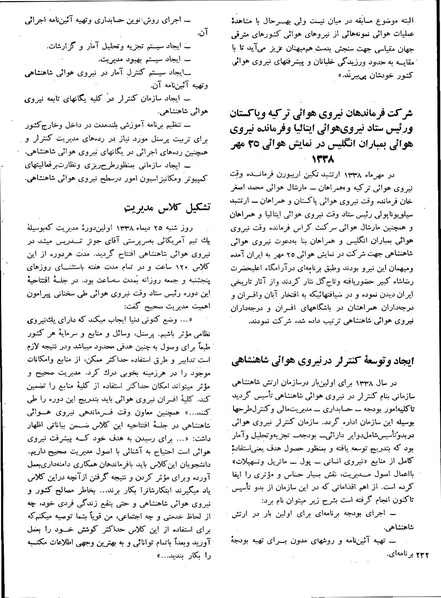 البته موضوع مسابقه در میان نیست ولی بهرحال با مشاهدهٔ
عملیات هوائی نمونه‌هائی از نیروهای هوائی کشورهای مترقی
جهان مقیاسی جهت سنجش بدست هم‌میهنان عزیز می‌آید تا با
مقایسه به حدود ورزیدگی خلبانان و پیشرفتهای نیروی هوائی
کشور خودشان پی‌ببرند.»
شرکت فرماندهان نیروی هوائی ترکیه و پاکستان
و رئیس ستاد نیروی هوائی ایتالیا و فرمانده نیروی
هوائی بمباران انگلیس در نمایش هوائی ۲۵ مهر
۱۳۳۸
در مهرماه ۱۳۳۸ ارتشبد تکین اریبورن فرمانده وقت
نیروی هوائی ترکیه و همراهان ــ مارشال هوائی محمد اصغر
خان فرمانده وقت نیروی هوائی پاکستان و همراهان ــ ارتشبد
سیلویوناپولی رئیس ستاد وقت نیروی هوائی ایتالیا و همراهان
و همچنین مارشال هوائی سرکنت کراس فرمانده وقت نیروی
هوائی بمباران انگلیس و همراهان بنا به دعوت نیروی هوائی
شاهنشاهی جهت شرکت در نمایش هوائی ۲۵ مهر به ایران آمده
و میهمان این نیرو بودند و طبق برنامه‌ای در آرامگاه اعلیحضرت
رضاشاه کبیر حضور یافته و تاج گل نثار کردند و از آثار تاریخی
ایران دیدن نموده و در ضیافتهائیکه به افتخار آنان و افسران و
درجه‌داران همراهشان در باشگاههای افسران و درجه‌داران
نیروی هوائی شاهنشاهی ترتیب داده شد شرکت نمودند.
ایجاد و توسعهٔ کنترلر در نیروی هوائی شاهنشاهی
در سال ۱۳۳۸ برای اولین‌بار در سازمان ارتش شاهنشاهی
سازمانی بنام کنترلر در نیروی هوائی شاهنشاهی تأسیس گردید
تا کلیه امور بودجه ــ حسابداری ــ مدیریت مالی و کنترل طرحها
بوسیله این سازمان اداره گردد. سازمان کنترلر نیروی هوائی
در بدو تأسیس شامل دوایر دارائی ــ بودجه ــ تجزیه و تحلیل و آمار
بود که بتدریج توسعه یافته و بمنظور حصول هدف یعنی استفادهٔ
کامل از منابع «نیروی انسانی ــ پول ــ ماتریل و تسهیلات»
با اعمال اصول مدیریت، نقش بسیار حساس و مؤثری را ایفا
کرده است. از اهم اقداماتی که در این سازمان از بدو تأسیس
تاکنون انجام گرفته است بشرح زیر میتوان نام برد:
ــ اجرای بودجه برنامه‌ای برای اولین بار در ارتش
شاهنشاهی.
ــ تهیه آئین‌نامه و روشهای مدون برای تهیه بودجهٔ
برنامه‌ای.
۲۳۲
ــ اجرای روش نوین حسابداری و تهیه آئین‌نامه اجرائی
آن.
ــ ایجاد سیستم تجزیه و تحلیل آمار و گزارشات.
ــ ایجاد سیستم بهبود مدیریت.
ــ ایجاد سیستم کنترل آمار در نیروی هوائی شاهنشاهی
و تهیه آئین‌نامه آن.
ــ ایجاد سازمان کنترلر در کلیه یگانهای تابعه نیروی
هوائی شاهنشاهی.
ــ تنظیم برنامه آموزشی بلندمدت در داخل و خارج کشور
برای تربیت پرسنل مورد نیاز در رده‌های مدیریت کنترلر و
همچنین رده‌های اجرائی در یگانهای نیروی هوائی شاهنشاهی.
ــ ایجاد سازمانی بمنظور طرح‌ریزی و نظارت بر فعالیتهای
کمپیوتر و مکانیزاسیون امور در سطح نیروی هوائی شاهنشاهی.
تشکیل کلاس مدیریت
روز شنبه ۲۵ دیماه ۱۳۳۸ اولین دورهٔ مدیریت که بوسیلهٔ
یک تیم آمریکائی بسرپرستی آقای جونز تدریس میشد در
نیروی هوائی شاهنشاهی افتتاح گردید. مدت هر دوره از این
کلاس ۱۲۰ ساعت و در تمام مدت هفته باستثنای روزهای
پنجشنبه و جمعه روزانه بمدت سه‌ساعت بود. در جلسهٔ افتتاحیهٔ
این دوره رئیس ستاد وقت نیروی هوائی طی سخنانی پیرامون
اهمیت مدیریت صحیح گفت:
«... وضع کنونی دنیا ایجاب میکند که دارای یک نیروی
نظامی مؤثر باشیم. پرسنل، وسائل و منابع و سرمایهٔ هر کشور
طبعاً برای وصول به چنین هدفی محدود میباشد و در نتیجه لازم
است تدابیر و طرق استفاده حداکثر ممکن، از منابع و امکانات
موجود را در هر زمینه بخوبی درک کرد. مدیریت صحیح و
مؤثر میتواند امکان حداکثر استفاده از کلیهٔ منابع را تضمین
کند. کلیهٔ افسران نیروی هوائی باید بتدریج این دوره را طی
کنند...» همچنین معاون وقت فرماندهی نیروی هوائی
شاهنشاهی در جلسهٔ افتتاحیه این کلاس ضمن بیاناتی اظهار
داشت: «... برای رسیدن به هدف خود که پیشرفت نیروی
هوائی است احتیاج به آشنائی با اصول مدیریت صحیح داریم.
دانشجویان این کلاس باید با فرماندهان همکاری دامنه‌داری بعمل
آورده و برای مؤثر کردن و نتیجه گرفتن از آنچه در این کلاس
یاد میگیرند ابتکاراتی را بکار برند... بخاطر مصالح کشور و
نیروی هوائی شاهنشاهی و حتی بنفع زندگی فردی خود، چه
از لحاظ خدمتی و چه اجتماعی، من قویاً بشما توصیه میکنم که
برای استفاده از این کلاس حداکثر کوشش خود را بعمل
آورید و بعداً باتمام توانائی و به بهترین وجهی اطلاعات مکتسبه
را بکار بندید...»